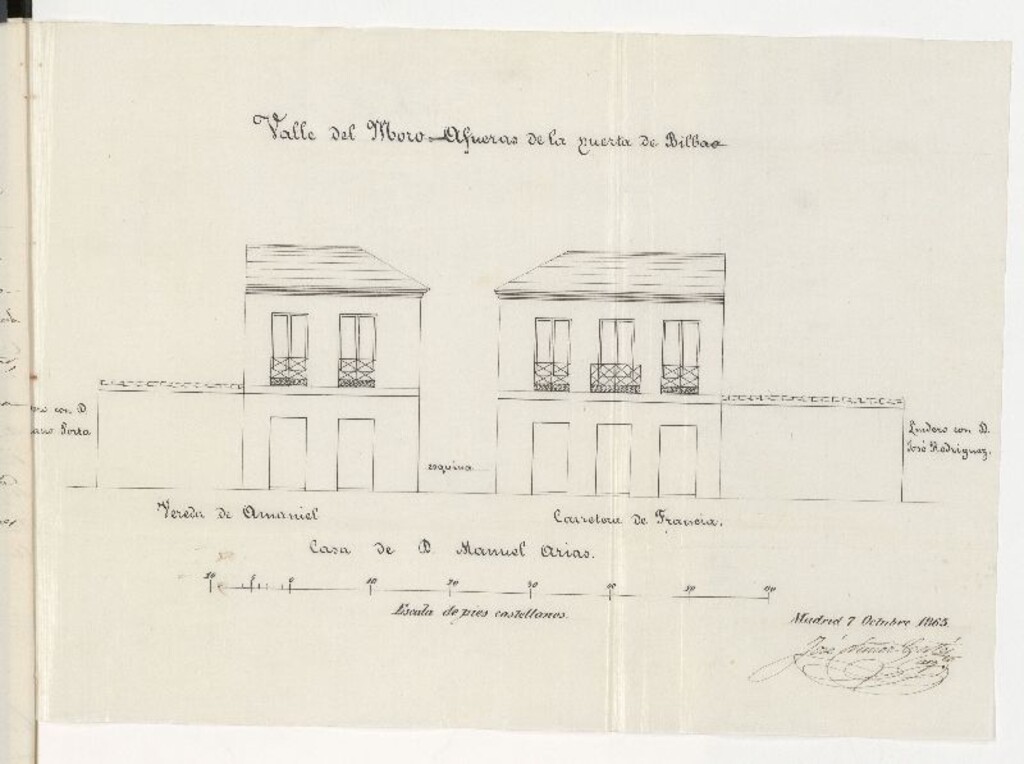 Valle del Moro-Afueras de la puerta de Bilbao
con D.
Porta
esquina
Lindero con D.
José Rodriguez.
Vereda de Amaniel
Carretera de Francia.
Casa de D. Manuel Arias.
10 5 0 10 20 30 40 50 60
Escala de pies castellanos.
Madrid 7 Octubre 1865.
José